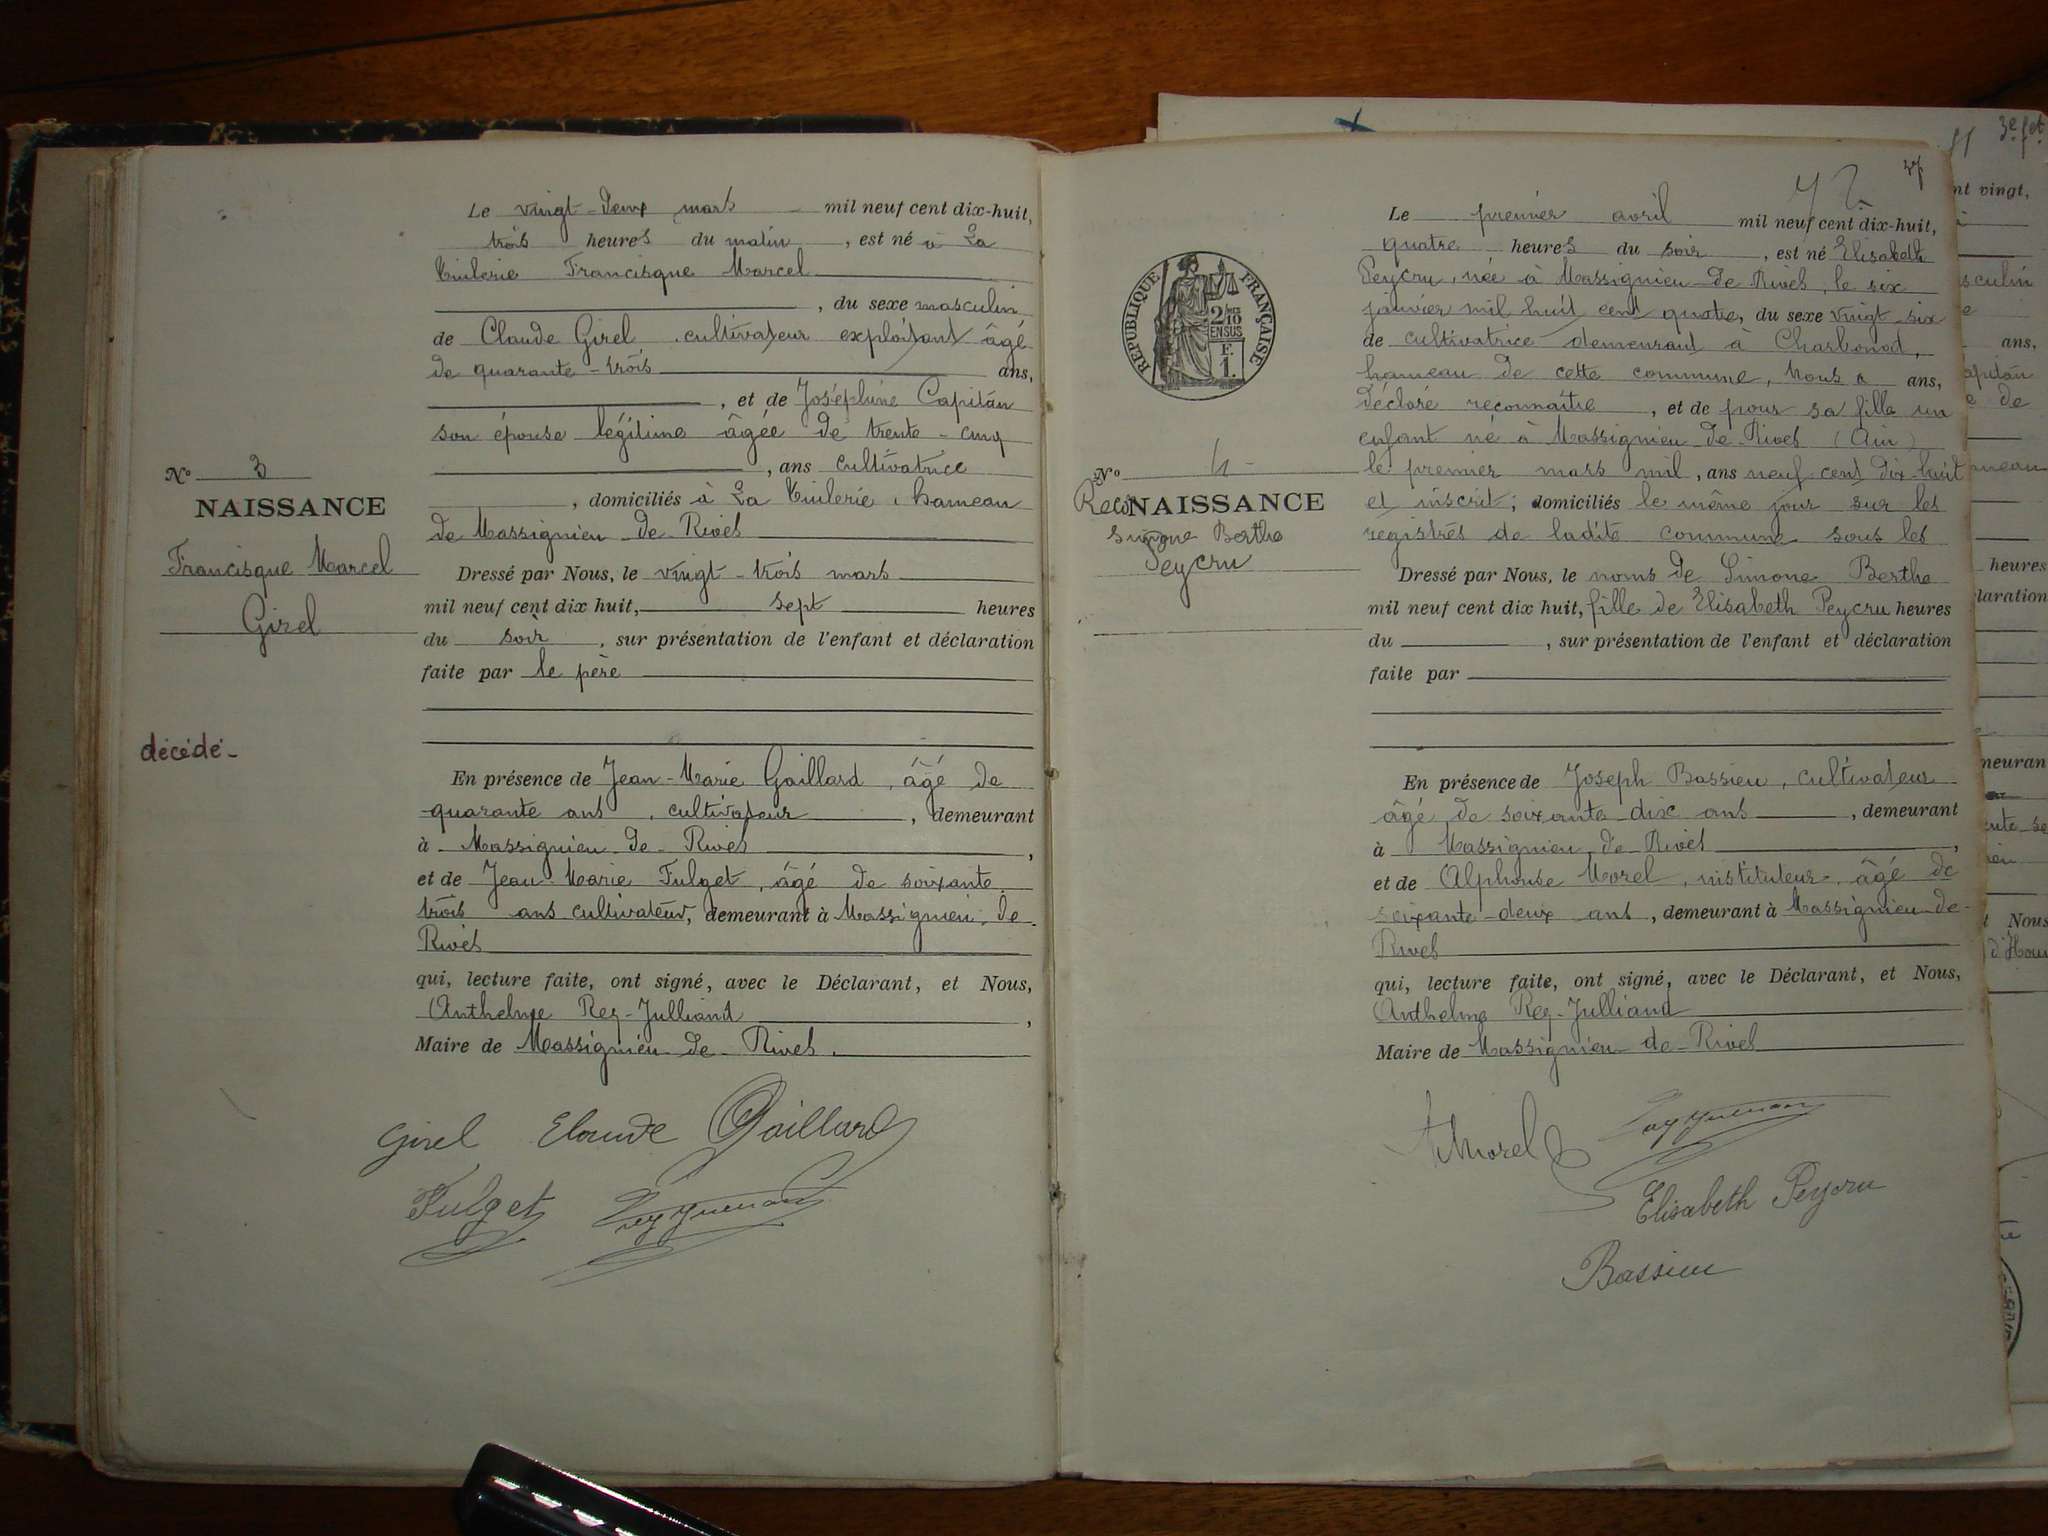 Le vingt-deux mars mil neuf cent dix-huit,
trois heures du matin, est né à La
Tuilerie Francisque Marcel
, du sexe masculin
de Claude Girel, cultivateur exploitant âgé
de quarante-trois ans,
, et de Joséphine Capitan
son épouse légitime âgée de trente-cinq
, ans cultivatrice
, domiciliés à La Tuilerie, hameau
de Massignieu-de-Rives
Dressé par Nous, le vingt-trois mars
mil neuf cent dix huit, sept heures
du soir, sur présentation de l'enfant et déclaration
faite par le père
En présence de Jean-Marie Gaillard, âgé de
quarante ans, cultivateur, demeurant
à Massignieu-de-Rives,
et de Jean-Marie Fulget, âgé de soixante
trois ans cultivateur, demeurant à Massignieu-de-
Rives
qui, lecture faite, ont signé, avec le Déclarant, et Nous,
Anthelme Rey-Julliand,
Maire de Massignieu-de-Rives.
No 3
NAISSANCE
Francisque Marcel
Girel
décédé-
Girel Claude Gaillard
Fulget
47
Le premier avril mil neuf cent dix-huit,
quatre heures du soir, est né Elisabeth
Peycru, née à Massignieu-de-Rives, le six
janvier mil huit cent quatre, du sexe vingt-six
de cultivatrice demeurant à Charbonod,
hameau de cette commune, Nous a ans,
déclaré reconnaître, et de pour sa fille un
enfant né à Massignieu-de-Rives (Ain)
le premier mars mil, ans neuf cent dix-huit
et inscrit; domiciliés le même jour sur les
registres de ladite commune sous les
Dressé par Nous, le noms de Simone Berthe
mil neuf cent dix huit, fille de Elisabeth Peycru heures
du , sur présentation de l'enfant et déclaration
faite par
En présence de Joseph Bassieu, cultivateur
âgé de soixante-dix ans, demeurant
à Massignieu-de-Rives,
et de Alphonse Morel, instituteur, âgé de
soixante-deux ans, demeurant à Massignieu-de-
Rives
qui, lecture faite, ont signé, avec le Déclarant, et Nous,
Anthelme Rey-Julliand
Maire de Massignieu-de-Rives
RÉPUBLIQUE FRANÇAISE
2 10
EN SUS
E.
1.
No 4
Reco NAISSANCE
Simone Berthe
Peycru
Morel
Elisabeth Peycru
Bassieu
3e fet.
nt vingt,
sculin
ans,
apitan
de
heures
laration
meuran
Nous